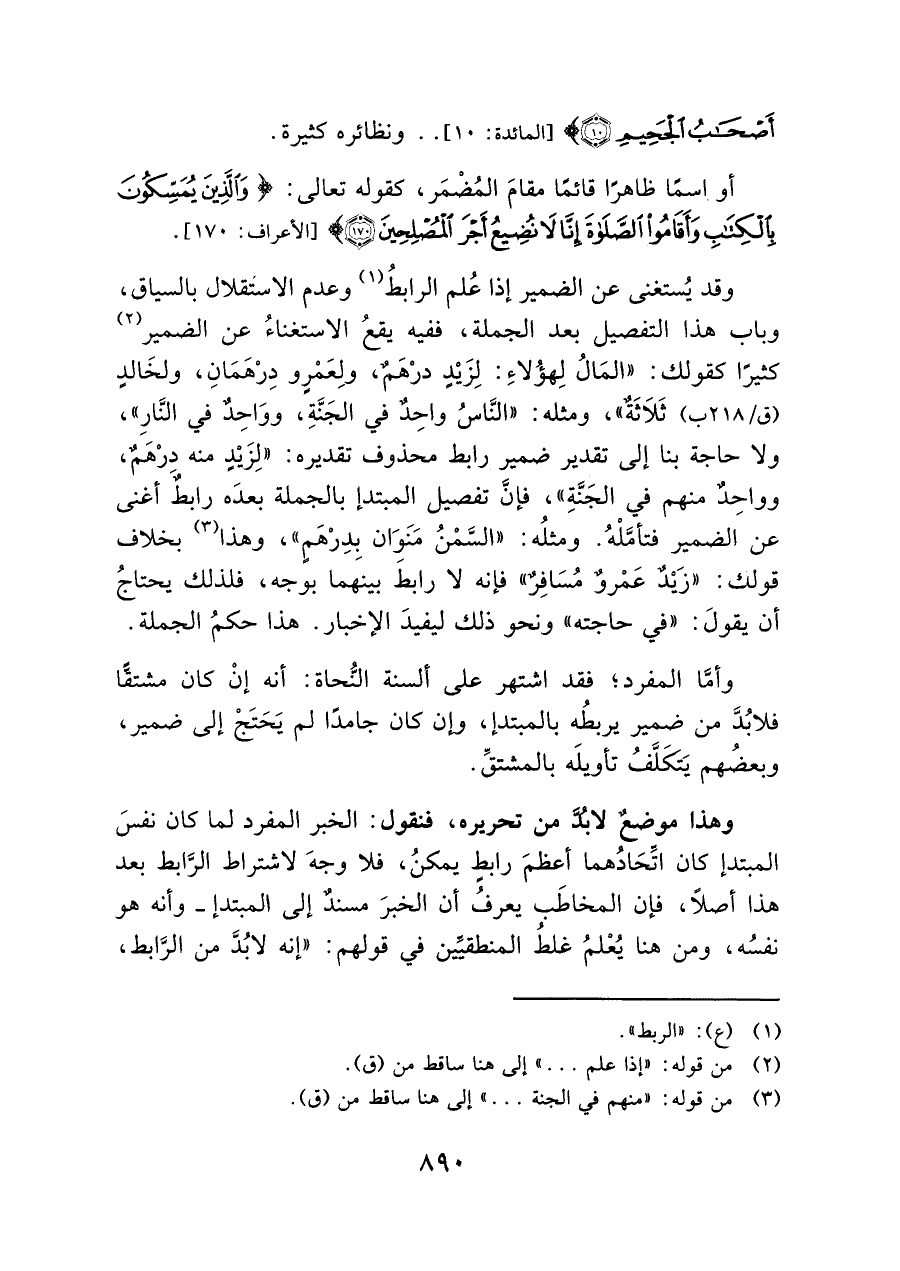 أَصْحَـٰبُ ٱلْجَحِيمِ ﴿١٠﴾ [المائدة: ١٠].. ونظائره كثيرة.
أو اسمًا ظاهرًا قائمًا مقامَ المُضْمَر، كقوله تعالى: ﴿وَٱلَّذِينَ يُمَسِّكُونَ
بِٱلْكِتَـٰبِ وَأَقَامُوا۟ ٱلصَّلَوٰةَ إِنَّا لَا نُضِيعُ أَجْرَ ٱلْمُصْلِحِينَ ﴿١٧٠﴾ [الأعراف: ١٧٠].
وقد يُستغنى عن الضمير إذا عُلم الرابطُ(١) وعدم الاستَقلال بالسياق،
وباب هذا التفصيل بعد الجملة، ففيه يقعُ الاستغناءُ عن الضمير(٢)
كثيرًا كقولك: «المَالُ لِهؤُلاءِ: لِزَيْدٍ درْهَمٌ، ولِعَمْرِو دِرْهَمَانِ، ولخَالدٍ
(ق/٢١٨ب) ثَلَاثَةٌ»، ومثله: «النَّاسُ واحِدٌ في الجَنَّةِ، ووَاحِدٌ في النَّارِ»،
ولا حاجة بنا إلى تقدير ضمير رابط محذوف تقديره: «لِزَيْدٍ منه دِرْهَمٌ،
وواحِدٌ منهم في الجَنَّةِ»، فإنَّ تفصيل المبتدإ بالجملة بعدَه رابطٌ أغنى
عن الضمير فتأمَّلْهُ. ومثلُه: «السَّمْنُ مَنَوَان بِدِرْهَمٍ»، وهذا(٣) بخلاف
قولك: «زَيْدٌ عَمْروٌ مُسَافِرٌ» فإنه لا رابطَ بينهما بوجه، فلذلك يحتاجُ
أن يقولَ: «في حاجته» ونحو ذلك ليفيدَ الإخبار. هذا حكمُ الجملة.
وأمَّا المفرد؛ فقد اشتهر على ألسنة النُّحاة: أنه إنْ كان مشتقًّا
فلابُدَّ من ضمير يربطُه بالمبتدإ، وإن كان جامدًا لم يَحَتَجْ إلى ضمير،
وبعضُهم يَتَكَلَّفُ تأويلَه بالمشتقِّ.
وهذا موضعٌ لابُدَّ من تحريره، فنقول: الخبر المفرد لما كان نفسَ
المبتدإ كان اتِّحَادُهما أعظمَ رابطٍ يمكنُ، فلا وجهَ لاشتراط الرَّابط بعد
هذا أصلاً، فإن المخاطَب يعرفُ أن الخبرَ مسندٌ إلى المبتدإ ـ وأنه هو
نفسُه، ومن هنا يُعْلمُ غلطُ المنطقيِّين في قولهم: «إنه لابُدَّ من الرَّابط،
(١) (ع): «الربط».
(٢) من قوله: «إذا علم ...» إلى هنا ساقط من (ق).
(٣) من قوله: «منهم في الجنة ...» إلى هنا ساقط من (ق).
٨٩٠